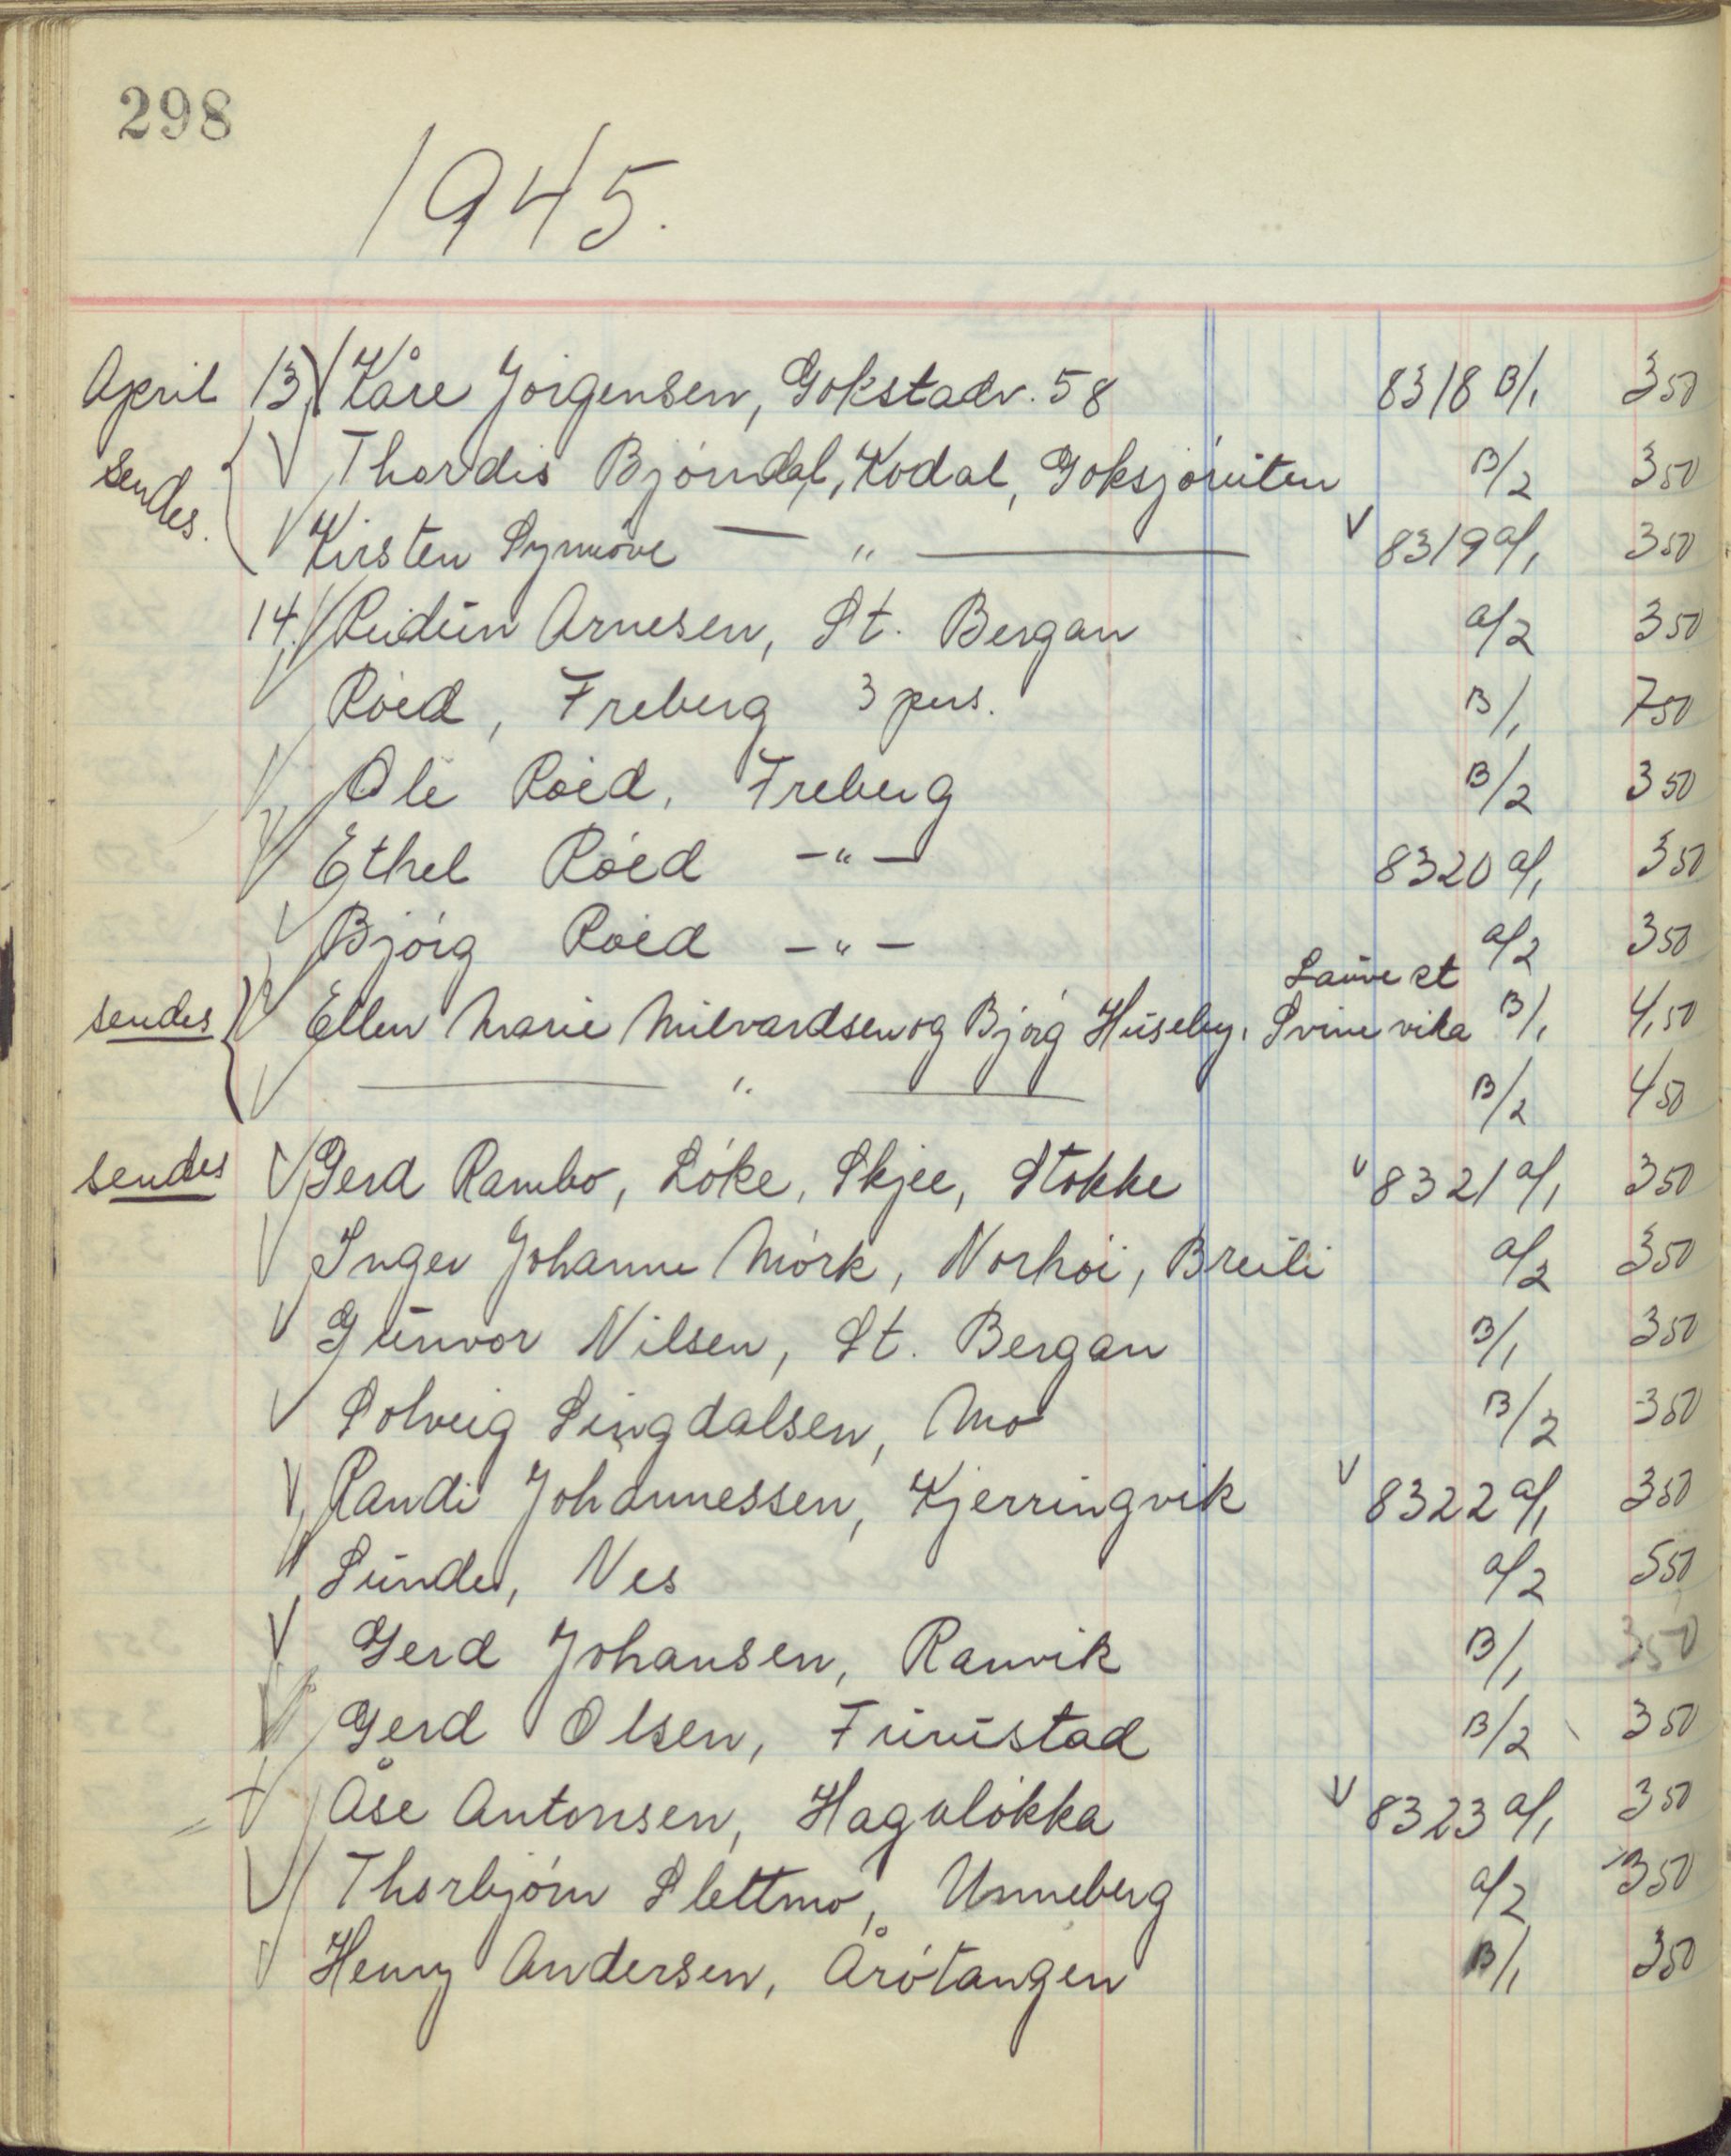 298
1945.
April 13 Kåre Jörgensen, Gokstadv. 58 8318 B/1 350
sendes. Thordis Bjørndal, Kodal, Goksjøruten B/2 350
Kirsten Synnøve — " — 8319 a/1 350
14. Reidun Arnesen, St. Bergan a/2 350
Røed, Freberg 3 pers. B/1 750
Ole Røed, Freberg B/2 350
Ethel Røed -"- 8320 a/1 350
Bjørg Røed -"- a/2 350
Lauve st
sendes Ellen Marie Milvardsen og Bjørg Huseby, Svinevika B/1 4,50
— " — B/2 450
sendes Gerd Rambo, Løke, Skjee, Stokke 8321 a/1 350
Inger Johanne Mørk, Norhøi, Breili a/2 350
Gunvor Nilsen, St. Bergan B/1 350
Solveig Lingdalsen, Mo B/2 350
Randi Johannessen, Kjerringvik 8322 a/1 350
Sunde, Nes a/2 550
Gerd Johansen, Ranvik B/1 350
Gerd Olsen, Furustad B/2 350
Åse Antonsen, Hagaløkka 8323 a/1 350
Thorbjørn Slettmo, Unneberg a/2 350
Henry Andersen, Årøtangen B/1 350